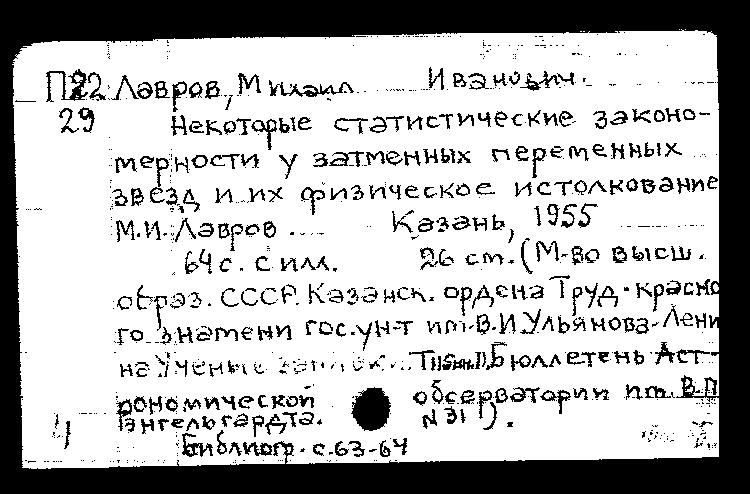 П22 Лавров, Михаил Иванович.
29 Некоторые статистические законо-
мерности у затменных переменных
звезд и их физическое истолкование
М.И. Лавров ... Казань, 1955
64 с. с илл. 26 см. (М-во высш.
образ. СССР. Казанск. ордена Труд. красно
го знамени гос. ун-т им. В.И. Ульянова-Лени
на Ученые записк... Бюллетень Аст-
рономической обсерватории им. В.П
Энгельгардта. N 31).
4 Библиогр. с. 63-64